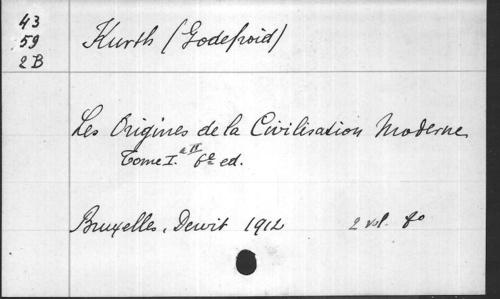 43
59
2 B
Kurth (Godefroid)
Les Origines de la Civilisation Moderne
Tome I. a II 6e ed.
Bruxelles, Dewit 1912 2 vol. 8o